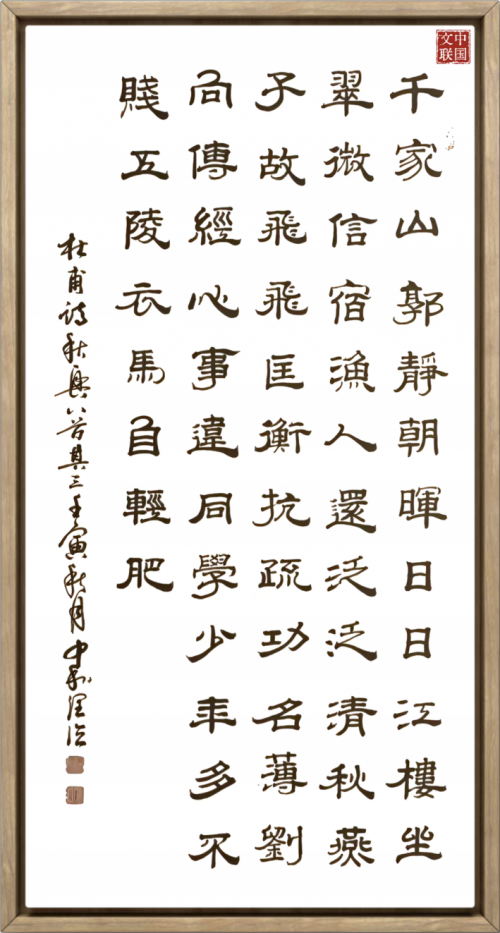 中国文联
千家山郭靜朝暉日日江樓坐
翠微信宿漁人還泛泛清秋燕
子故飛飛匡衡抗疏功名薄劉
向傳經心事違同學少年多不
賤五陵衣馬自輕肥
杜甫诗秋興八首其三壬寅秋月中